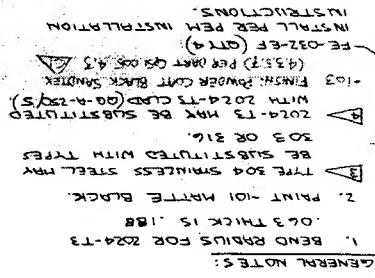 GENERAL NOTES:
1. BEND RADIUS FOR 2024-T3
.063 THICK IS .188
2. PAINT -101 MATTE BLACK.
3 TYPE 304 STAINLESS STEEL MAY
BE SUBSTITUTED WITH TYPES
303 OR 316.
4 2024-T3 MAY BE SUBSTITUTED
WITH 2024-T3 CLAD (QQ-A-250/5)
-103 FINISH: POWDER COAT BLACK SANDTEX
(4.3.5.7) PER DART QSI 005 4.3
FE-032-EF (QTY 4)
INSTALL PER PEM INSTALLATION
INSTRUCTIONS.